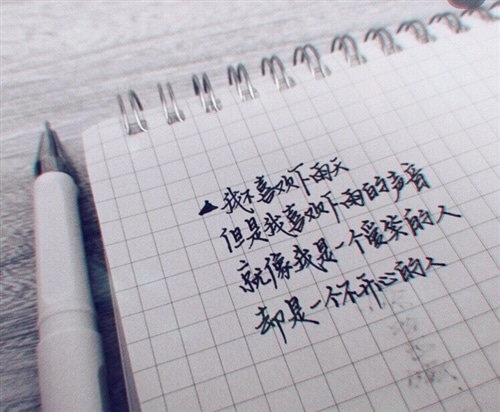 ▲我不喜欢下雨天
但是我喜欢下雨的声音
就像我是一个爱笑的人
却是一个不开心的人